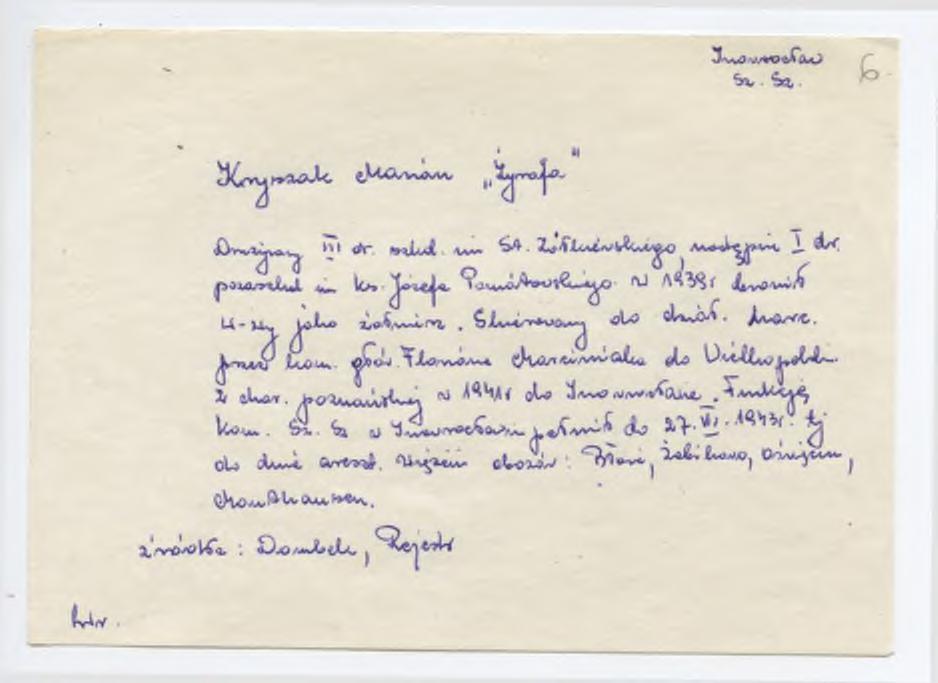 Inowrocław
Sz. Sz.
6
Kryszak Marian „Żyrafa”
Drużyny III dr. szkol. im St. Żółkiewskiego, następnie I dr.
pozaszkol im ks. Józefa Poniatowskiego. W 1939r bronił
W-wy jako żołnierz. Skierowany do dział. harc.
przez kom. głów. Floriana Marciniaka do Wielkopolski.
Z chor. poznańskiej w 1941r do Inowrocławia. Funkcję
kom. Sz. Sz w Inowrocławiu pełnił do 27.VII.1943r. tj
do dnia areszt. Więzień obozów: Błonie, Żabikowo, Oświęcim,
Mauthausen.
źródła: Dombek, Rejestr